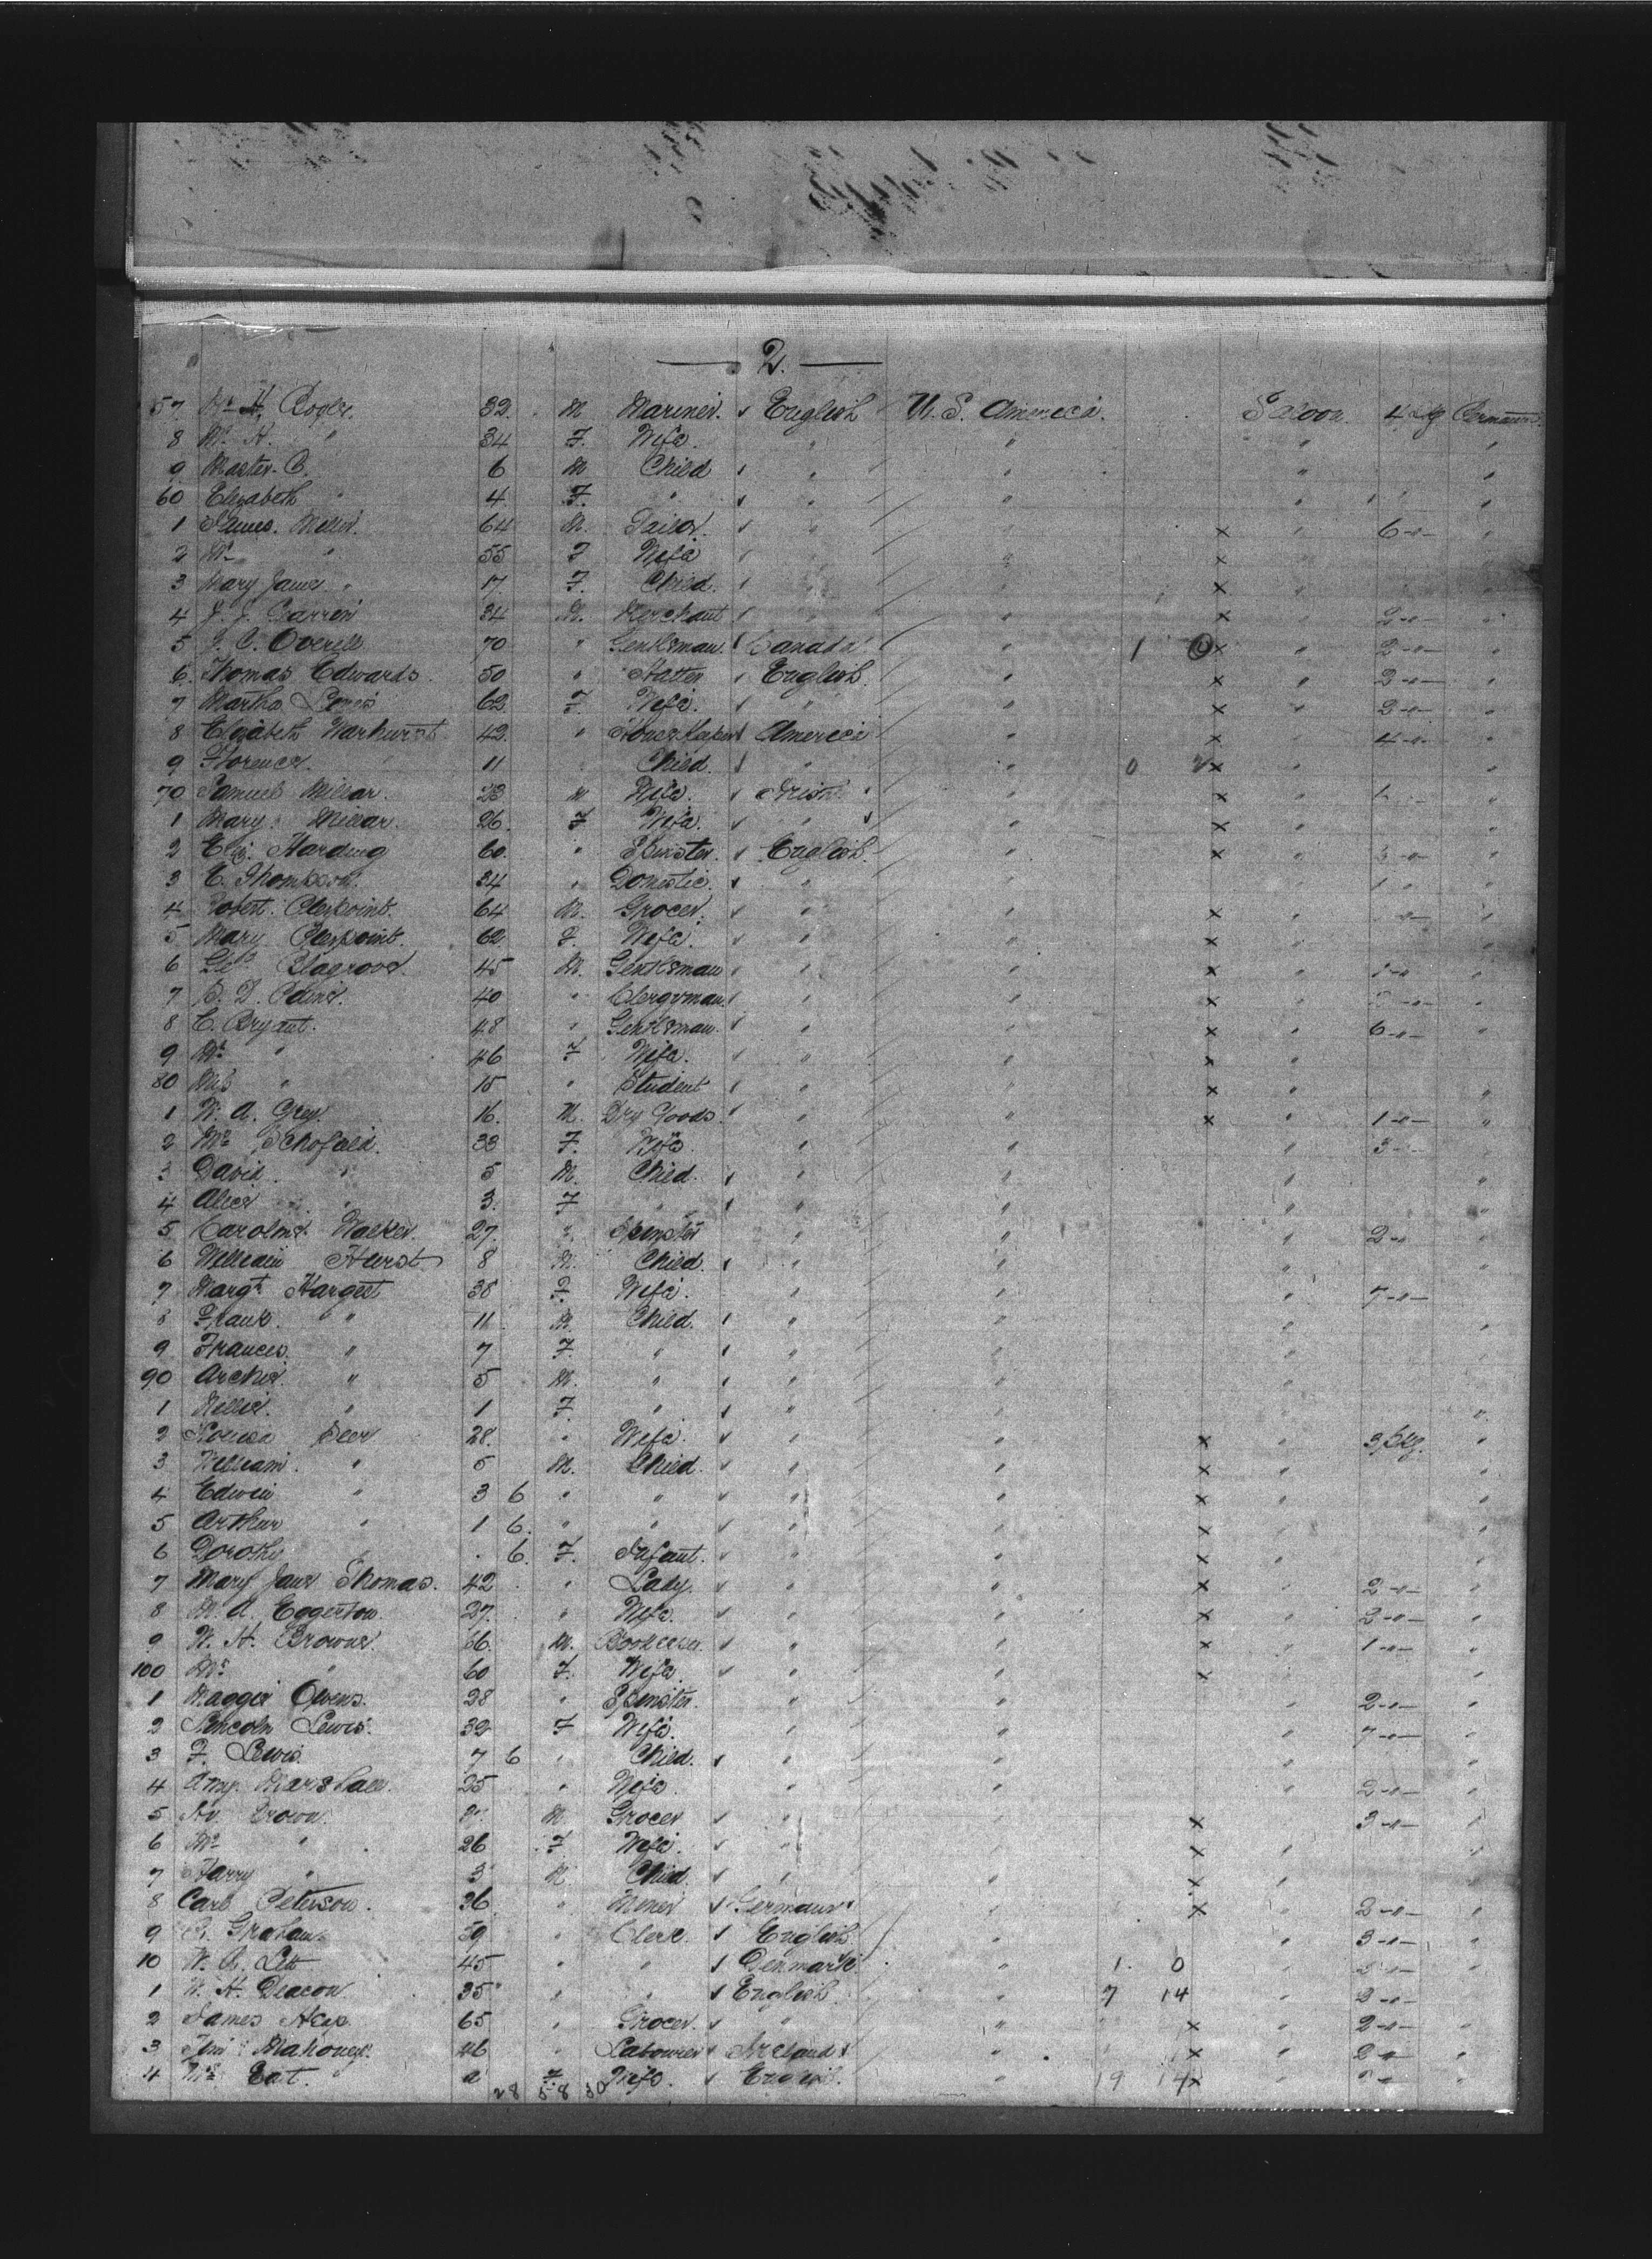 2.
57 Mr H. Bogle. 32. M Mariner. English U. S. America. Saloon 4 pkg Permanent
8 Mrs H. " 34 F. Wife. " " " "
9 Master C. 6 M Child " " " "
60 Elizabeth " 4 F. " " " " "
1 James. Miller. 64 M. Tailor. " " x " 6 -"- "
2 Mrs " 55 F Wife " " x " "
3 Mary Jane. " 17. F. Child. " " x " "
4 J. J. 34 M. Merchant " " x " 2 -"- "
5 J. C. Overell 70 " Gentleman. Canada " 1 0 x " 2 -"- "
6. Thomas Edwards. 50 " Hatter English. " x " 2 -"- "
7 Martha Lewis 62 F. Wife. " " x " 2 -"- "
8 Elizabeth Warhurst 42. " Housekeeper America " x " 4 -"- "
9 Florence. 11 Child. " " 0 2 x " "
70 Samuel Millar. 23 M Wife. Irish " x " 1 "
1 Mary. Millar. 26. F Wife. " " x " "
2 Eliz. Harding 60. " Spinster. English. " x " 3 -"- "
3 E. Thompson. 34 " Domestic. " " " 1 " "
4 Robert. Clerpoint. 64 M. Grocer. " " x " -"- "
5 Mary Clerpoint. 62 F. Wife. " " x " "
6 Geo Blagrove. 45 M. Gentleman " " x " "
7 40 " Clergyman. " " x " -"- "
8 C. Bryant. 48 " Gentleman. " " x " 6 -"- "
9 Mrs " 46 F. Wife. " " x "
80 Miss " 15 " Student " " x " "
1 W. A. Grey. 16. M. Dry Goods. " " x " 1 -"- "
2 Mrs Schofield. 33 F. Wife. " " " 3
3 David. " 5 M. Child. " " " "
4 Alice " 3. F " " " " "
5 Caroline Walker. 27. " Spinster " " " 2 -"- "
6 William Hurst 8 M. Child. " " " "
7 Margt Hargett 38 F. Wife. " " " 7 -"-
8 Frank. " 11. M. Child. " " " "
9 Frances. " 7 F. " " " " "
90 Archie. " 5 M. " " " "
1 Nellie. " 1 F. " " "
2 Louisa Deer 28. " Wife. " " x " 3 pkg. "
3 William. " 5 M. Child. " " x " "
4 Edwin " 3 6 " " " " x " "
5 Arthur " 1 6. " " " " x " "
6 Dorothy " . 6. F. Infant. " " x " "
7 Mary Jane Thomas. 42 " Lady. " " x " 2 -"- "
8 M. A. Eggerton. 27. " Wife. " " x " 2 -"- "
9 W. H. Browne. 66. M. " " x " 1 -"- "
100 Mrs " 60 F. Wife. " " x "
1 Maggie Owens. 28 " Spinster. " " " 2 -"- "
2 Lincoln Lewis. 32 F Wife. " " " 7 -"- "
3 F. Lewis. 7 6 " Child. " " " "
4 Amy Marshall. 25 " Wife " " " 2 -"- "
5 Hy. Crown. M. Grocer " x 3 -"- "
6 Mrs " 26 F. Wife. " x " "
7 Harry " 3 M. Child. " x "
8 Carl Peterson. 26. " Miner German " x " 2 -"- "
9 R. Graham. 59 " Clerk. English " " 3 -"- "
10 W. A. Lett 45 " " Denmark. " 1. 0 " "
1 W. H. Deacon 35 " " English. " 7 14 " 2 -"-
2 James Heap 65 " Grocer. " " x " 2 -"- "
3 Jim Mahoney. 46 " Labourer Ireland " x " 2 " "
4 Mrs Eat. a F. Wife. English. " 19 14 x " "
28 58 30